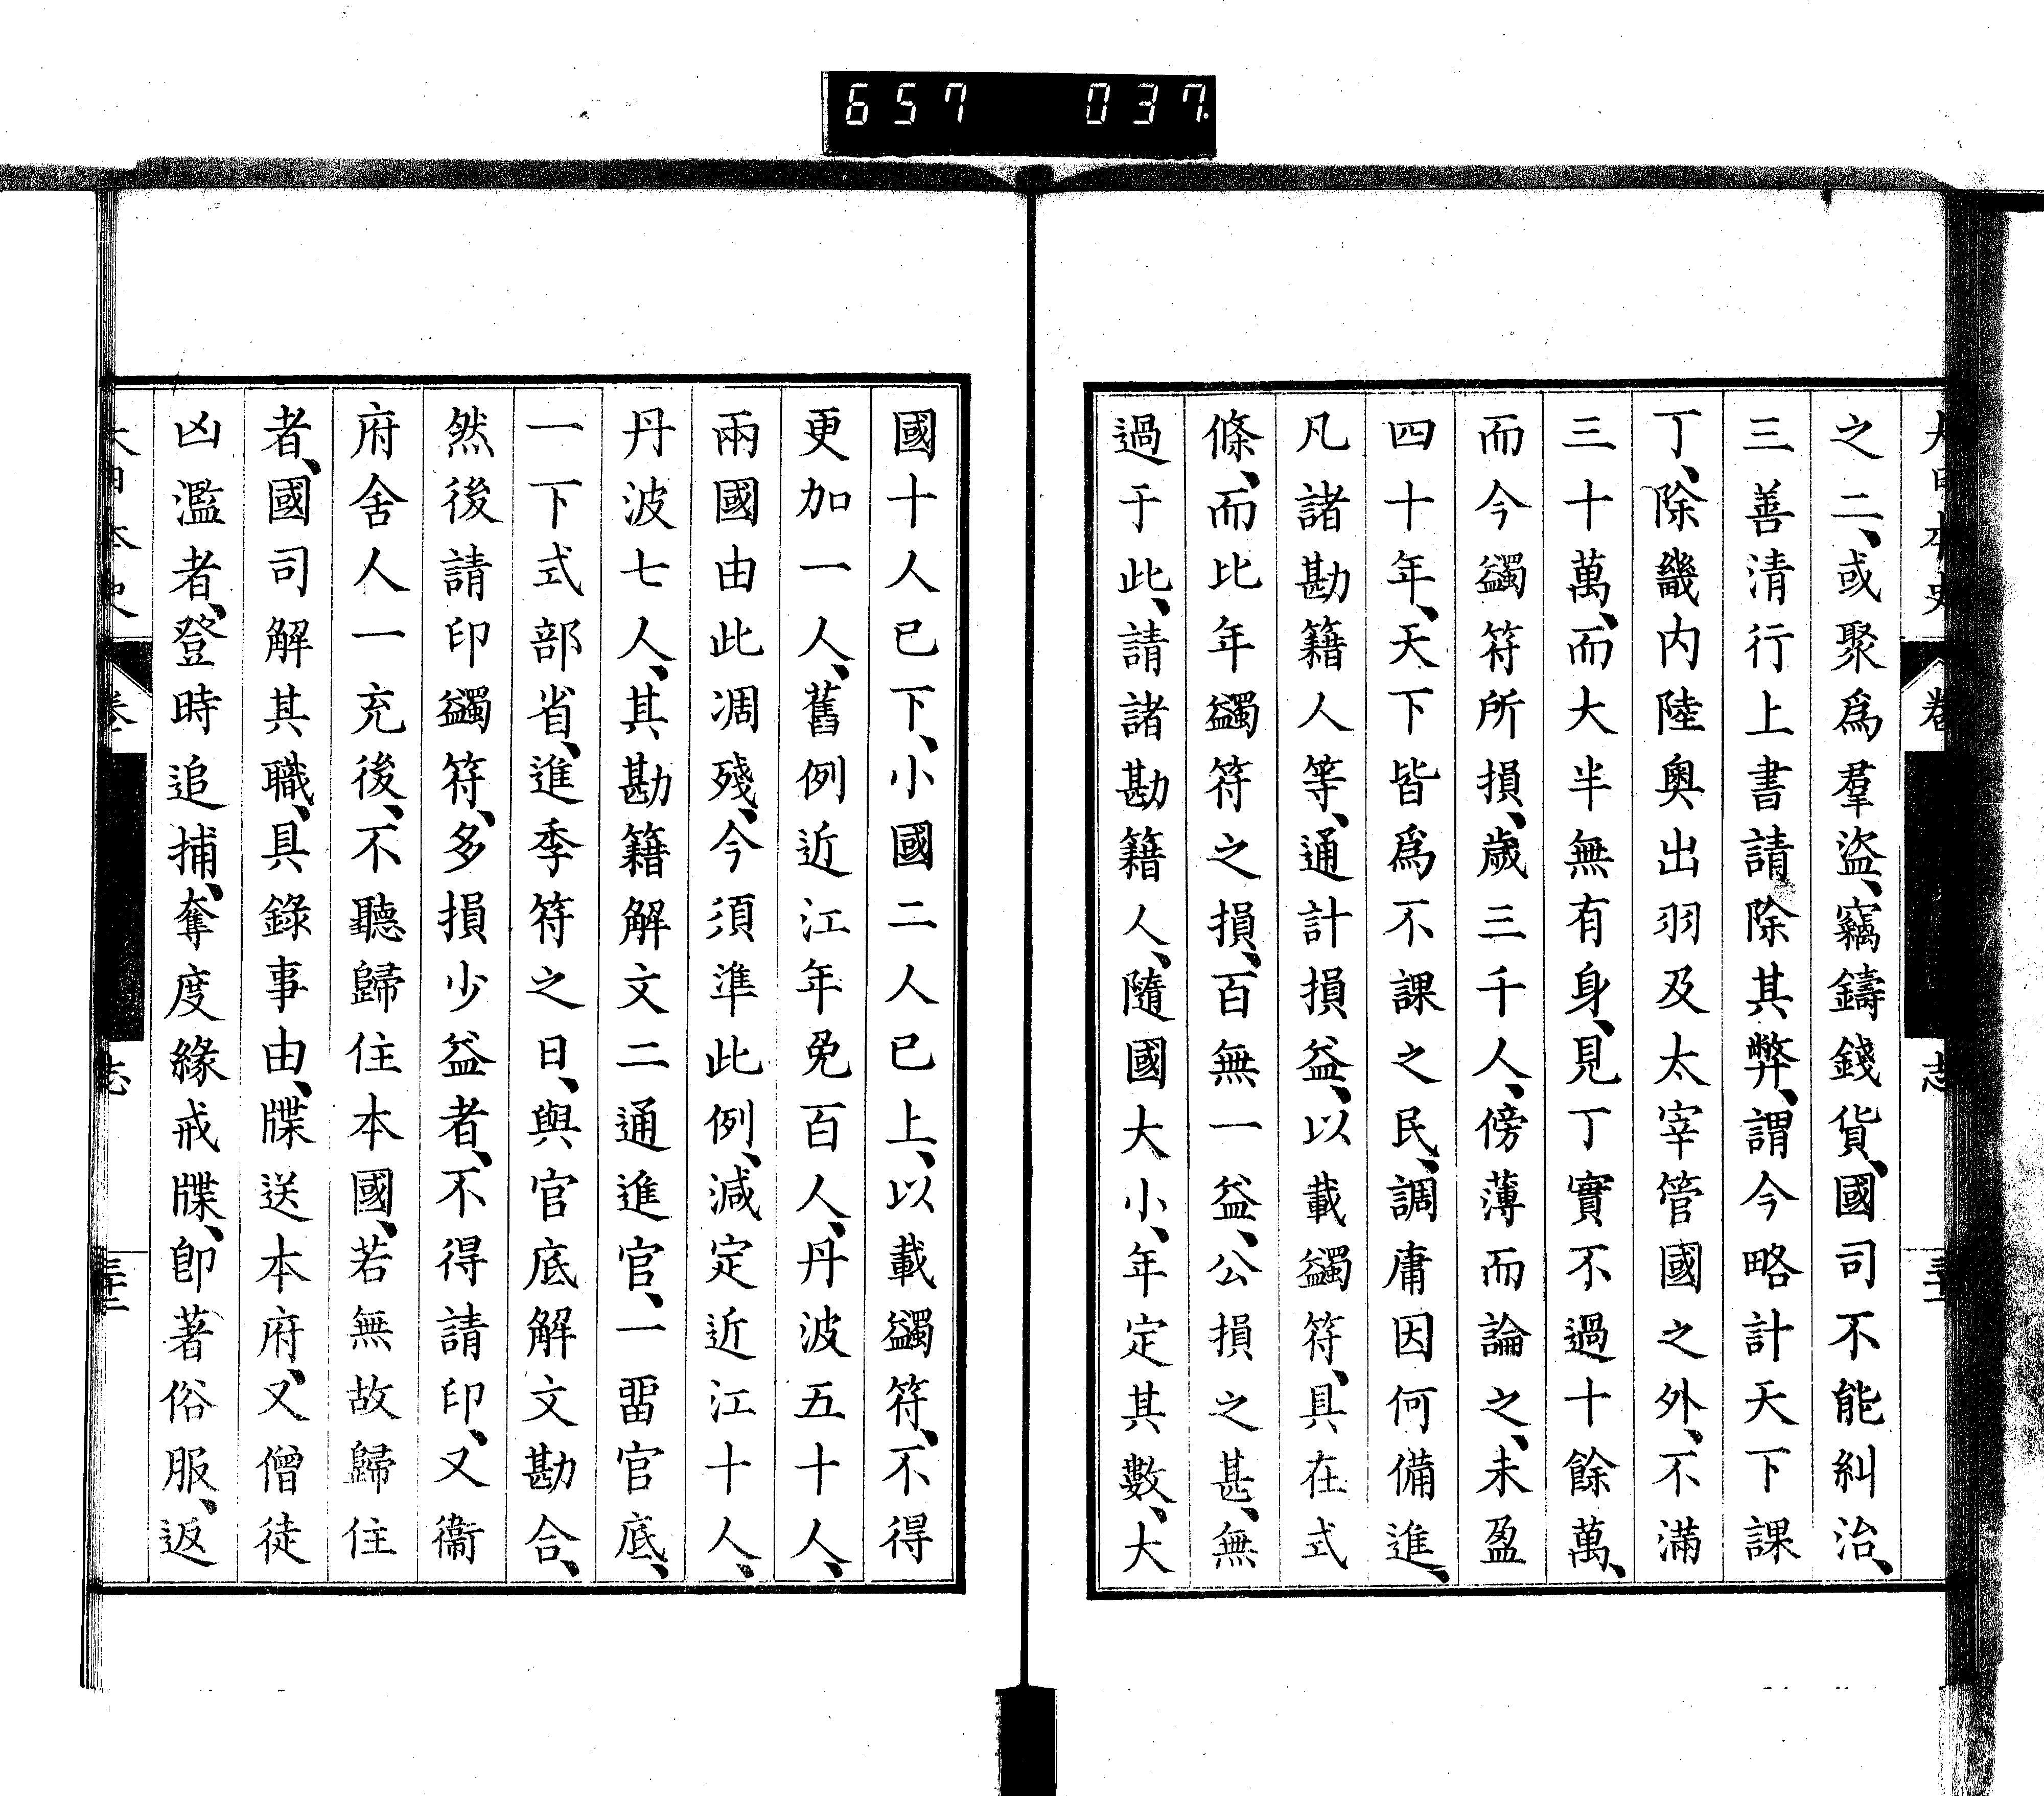 657 037
大日本史 卷 志
之二、或聚爲羣盜、竊鑄錢貨、國司不能糾治、
三善清行上書請除其弊、謂今略計天下課
丁、除畿内陸奧出羽及太宰管國之外、不滿
三十萬、而大半無有身、見丁實不過十餘萬、
而今蠲符所損、歲三千人、傍薄而論之、未盈
四十年、天下皆爲不課之民、調庸因何備進、
凡諸勘籍人等、通計損益、以載蠲符、具在式
條、而比年蠲符之損、百無一益、公損之甚、無
過于此、請諸勘籍人、隨國大小、年定其數、大
國十人已下、小國二人已上、以載蠲符、不得
更加一人、舊例近江年免百人、丹波五十人、
兩國由此凋殘、今須準此例、減定近江十人、
丹波七人、其勘籍解文二通進官、一畱官底、
一下式部省、進季符之日、與官底解文勘合、
然後請印蠲符、多損少益者、不得請印、又衞
府舍人一充後、不聽歸住本國、若無故歸住
者、國司解其職、具錄事由、牒送本府、又僧徒
凶濫者、登時追捕、奪度緣戒牒、卽著俗服、返
大日本史 卷 志